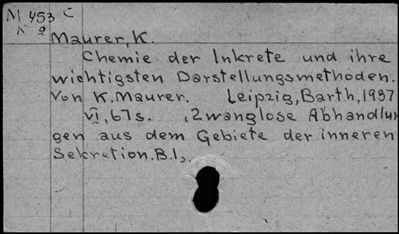 M 453 C
K 2
Maurer, K.
Chemie der Inkrete und ihre
wichtigsten Darstellungsmethoden.
Von K. Maurer. Leipzig, Barth, 1937
VI, 67 s. (Zwanglose Abhandlun
gen aus dem Gebiete der inneren
Sekretion. B.1).